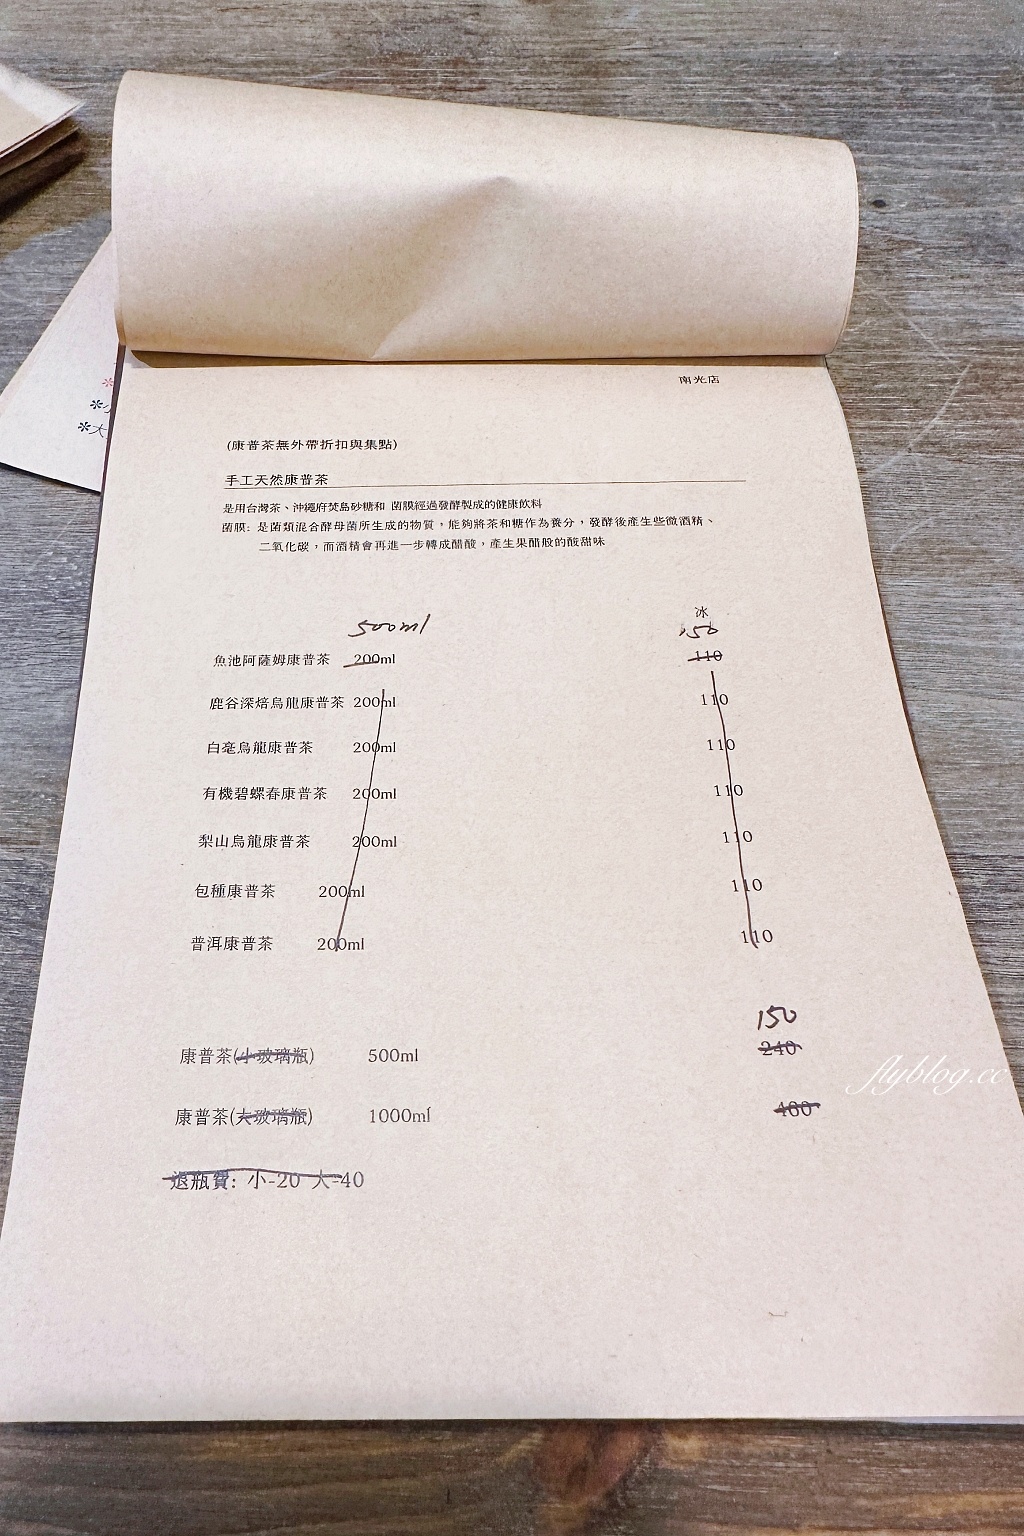 南光店
(康普茶無外帶折扣與集點)
手工天然康普茶
是用台灣茶、沖繩府焚島砂糖和 菌膜經過發酵製成的健康飲料
菌膜: 是菌類混合酵母菌所生成的物質，能夠將茶和糖作為養分，發酵後產生些微酒精、
二氧化碳，而酒精會再進一步轉成醋酸，產生果醋般的酸甜味
冰
500ml 150
魚池阿薩姆康普茶 200ml 110
鹿谷深焙烏龍康普茶 200ml 110
白毫烏龍康普茶 200ml 110
有機碧螺春康普茶 200ml 110
梨山烏龍康普茶 200ml 110
包種康普茶 200ml 110
普洱康普茶 200ml 110
150
康普茶(小玻璃瓶) 500ml 240
康普茶(大玻璃瓶) 1000ml 480
退瓶費: 小-20 大-40
*
*小
*大
flyblog.cc